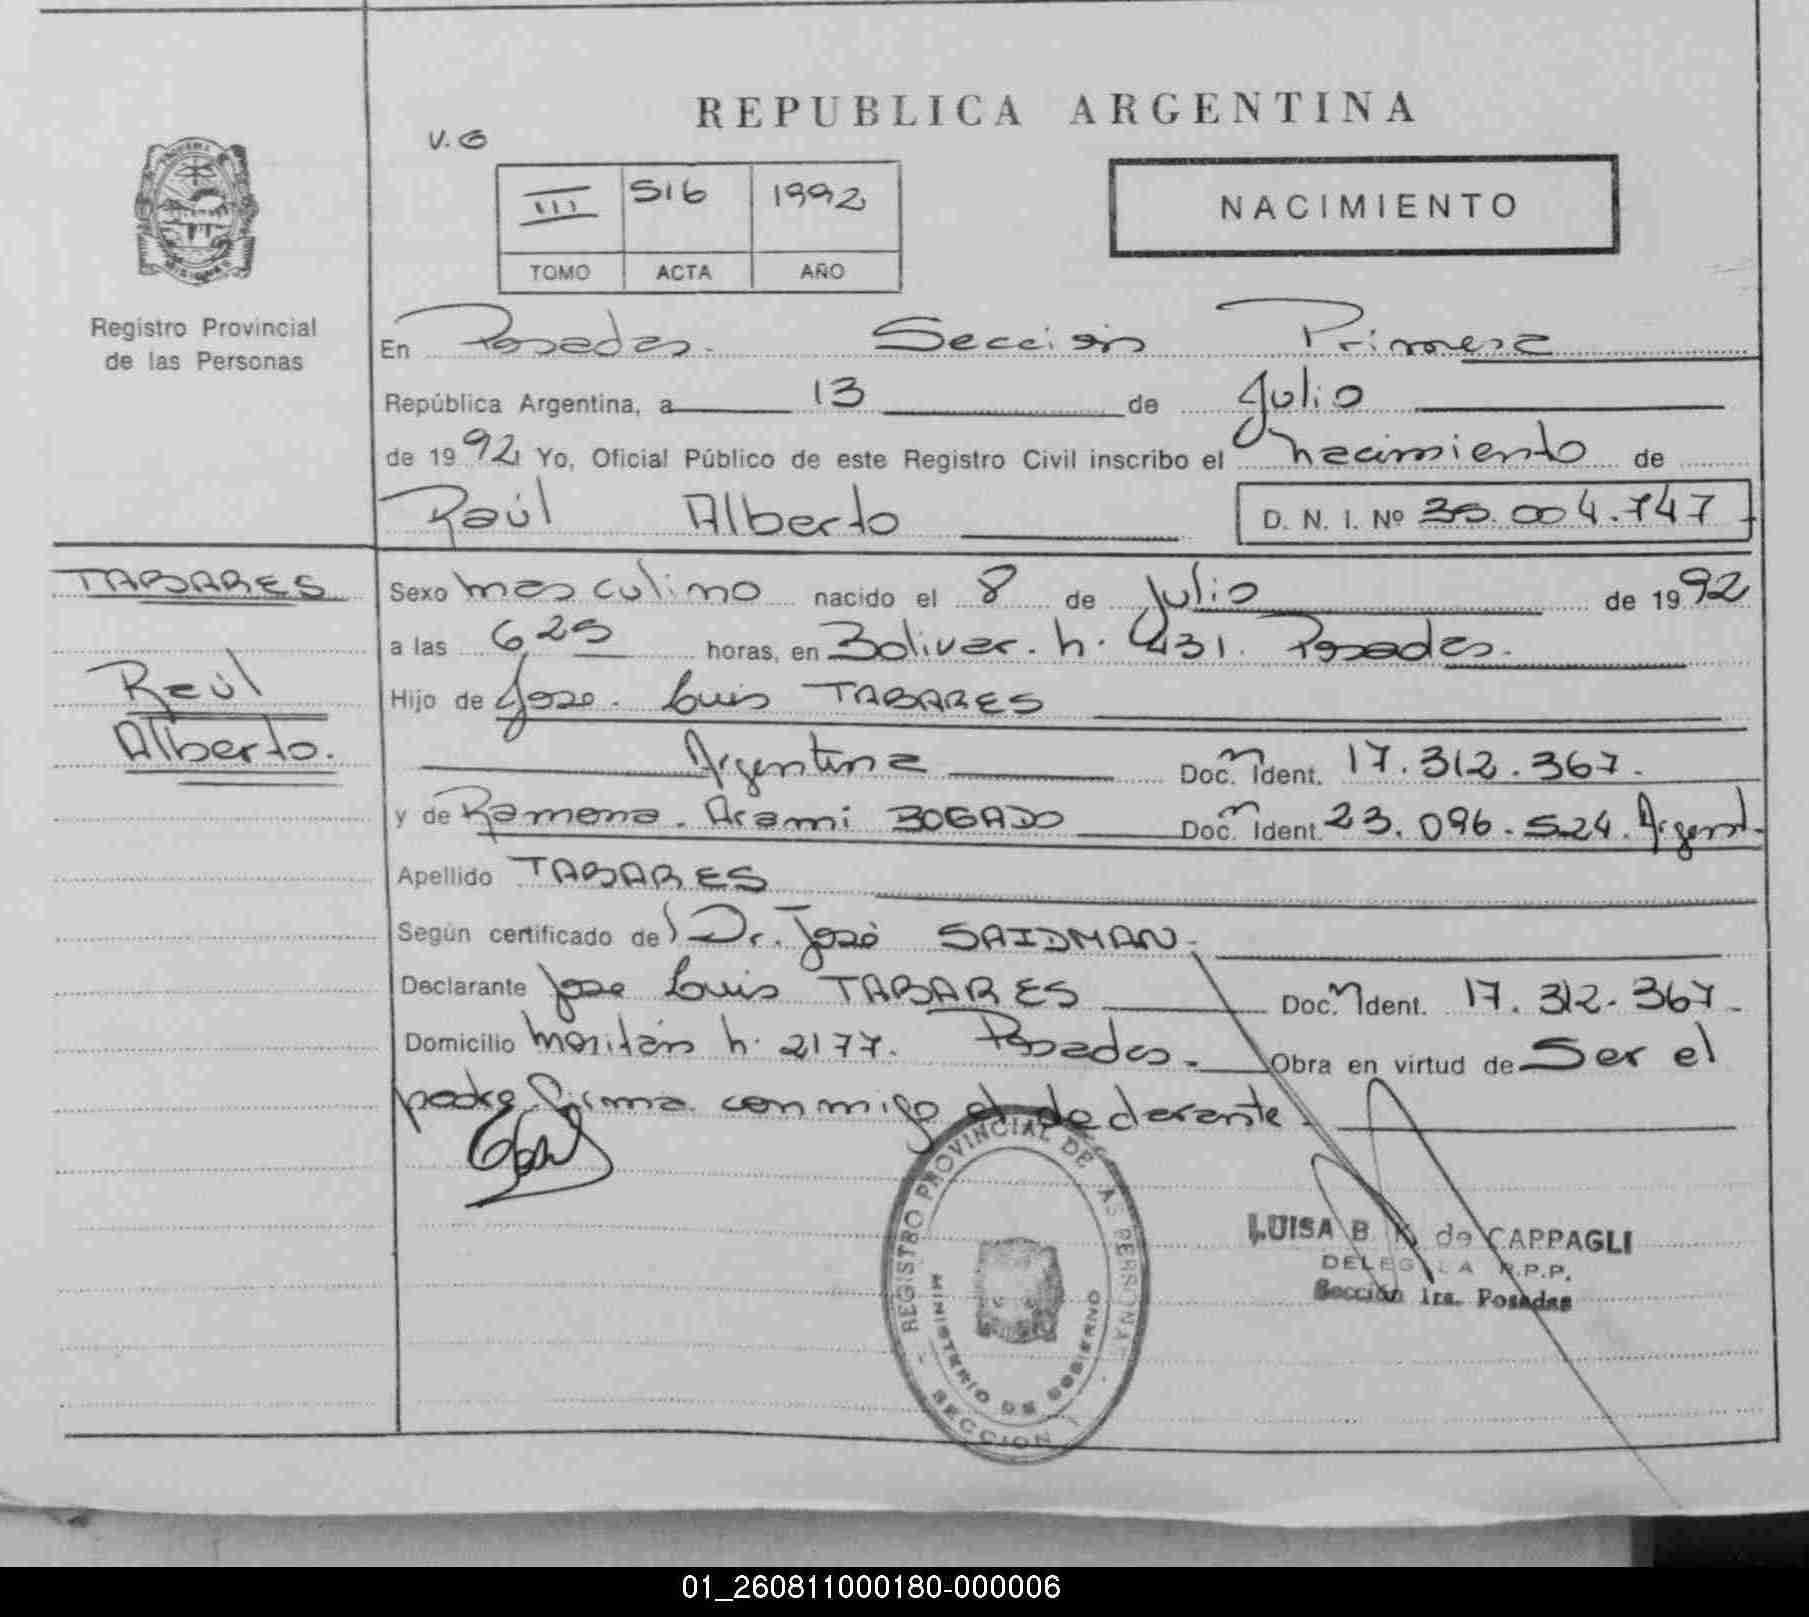 REPUBLICA ARGENTINA
V. G
III 516 1992
TOMO ACTA AÑO
NACIMIENTO
Registro Provincial
de las Personas
En Posadas. Sección Primera
República Argentina, a 13 de Julio
de 1992 Yo, Oficial Público de este Registro Civil inscribo el nacimiento de
Raúl Alberto D. N. I. Nº 36.004.747
TABARES
Raúl
Alberto.
Sexo masculino nacido el 8 de Julio de 1992
a las 6,25 horas, en Bolivar. h. 431. Posadas.
Hijo de Jose. Luis TABARES
Argentina Doc. Ident. 17.312.367.
y de Ramona. Arami BOGADO Doc. Ident. 23.096.524. Argent.
Apellido TABARES
Según certificado del Dr. José SAIDMAN.
Declarante Jose Luis TABARES Doc. Ident. 17.312.367.
Domicilio h. 2177. Posadas. Obra en virtud de Ser el
padre firma conmigo el declarante.
REGISTRO PROVINCIAL DE LAS PERSONAS
MINISTERIO DE GOBIERNO
SECCION
LUISA B de CAPPAGLI
R.P.P.
Sección 1ra. Posadas
01_260811000180-000006